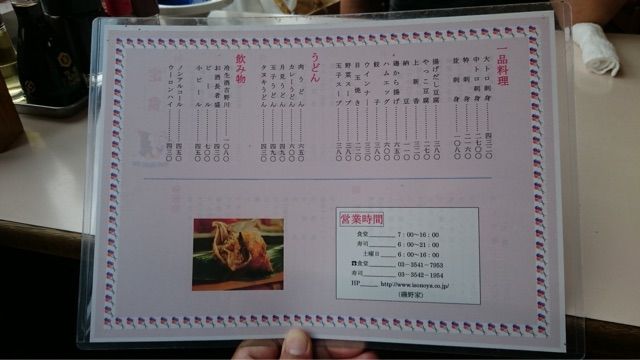 一品料理
大トロ刺身………四三二〇
中トロ刺身………二七〇〇
特刺身………二一六〇
並刺身………一〇八〇
揚げだし豆腐………三八〇
やっこ豆腐………二七〇
上新香
納豆
鶏から揚げ………六五〇
ハムエッグ………六〇〇
ウインナー
餃子
目玉焼き
野菜スープ………三八〇
玉子スープ………三八〇
うどん
肉うどん………六五〇
カレーうどん
月見うどん………四九〇
玉子うどん………四九〇
タヌキうどん………四三〇
飲み物
冷生酒吉野川………一〇八〇
お酒長者盛
ビール………七〇〇
小ビール………四五〇
ノンアルコール………四五〇
ウーロンハイ………四三〇
営業時間
食堂 7：00〜16：00
寿司 6：00〜21：00
土曜日 6：00〜16：00
☎食堂 03－3541－7953
寿司 03－3542－1954
HP http://www.isonoya.co.jp/
(磯野家)